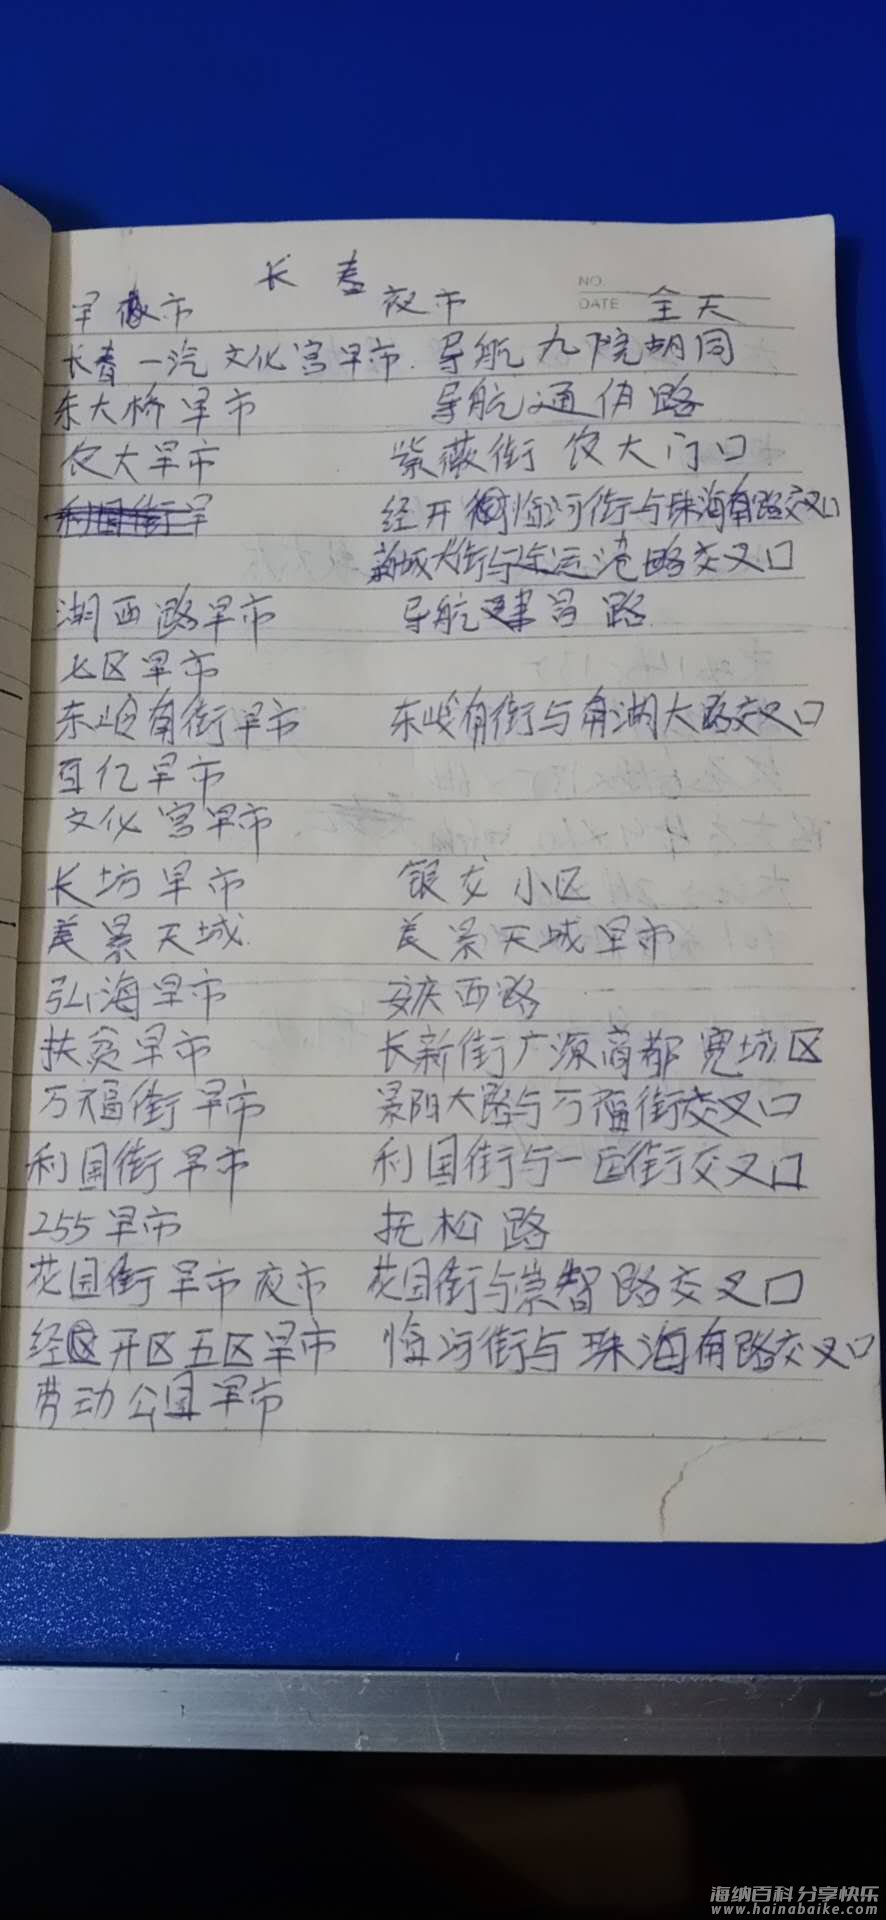 长春
NO.
DATE
早市 夜市 全天
长春一汽文化宫早市 导航九院胡同
东大桥早市 导航通佾路
农大早市 紫薇街 农大门口
利国街早 经开 临河街与珠海南路交叉口
新城大街与 运港路交叉口
湖西路早市 导航建昌路
七区早市
东岭南街早市 东岭南街与南湖大路交叉口
百亿早市
文化宫早市
长坊早市 银龙小区
美景天城 美景天城早市
弘海早市 安庆西路
扶贫早市 长新街广源商都 宽城区
万福街早市 景阳大路与万福街交叉口
利国街早市 利国街与一匡街交叉口
255早市 抚松路
花园街早市夜市 花园街与崇智路交叉口
经开区五区早市 临河街与珠海南路交叉口
劳动公园早市
海纳百科 分享快乐
www.hainabaike.com